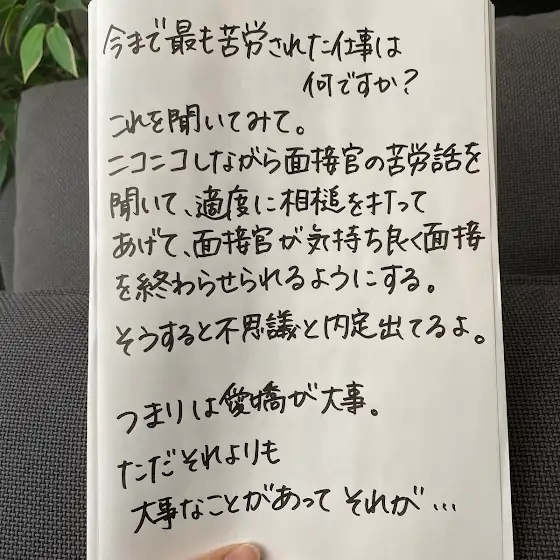 今まで最も苦労された仕事は
何ですか？
これを聞いてみて。
ニコニコしながら面接官の苦労話を
聞いて、適度に相槌を打って
あげて、面接官が気持ち良く面接
を終わらせられるようにする。
そうすると不思議と内定出てるよ。
つまりは愛嬌が大事。
ただそれよりも
大事なことがあって それが…